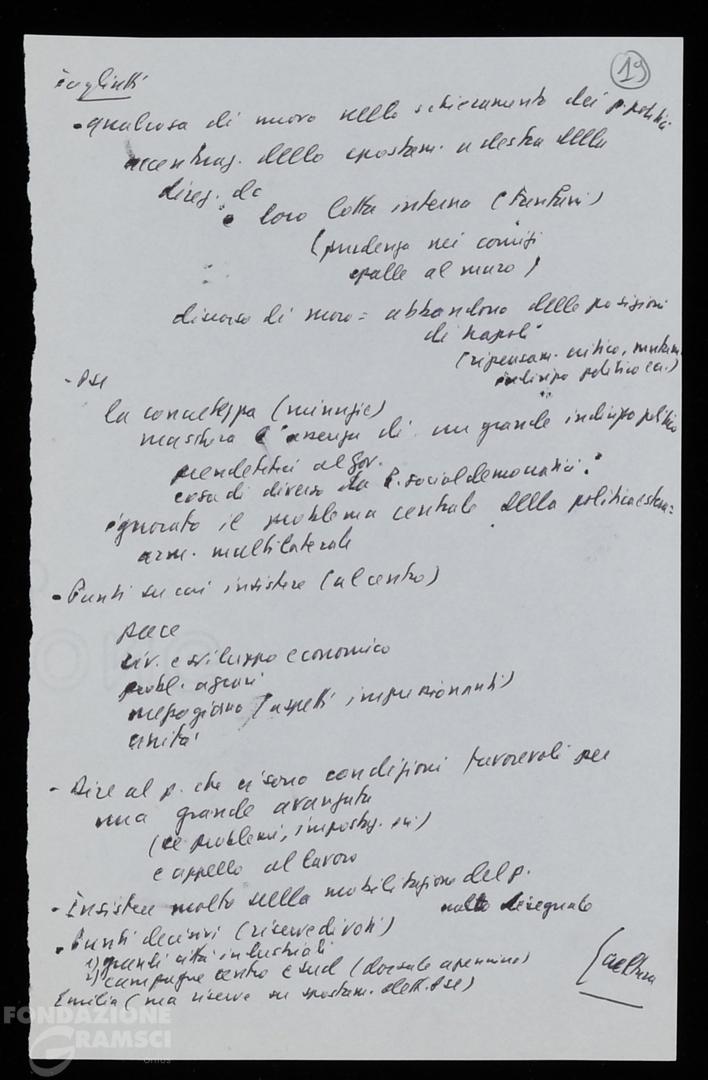 19
Togliatti
- qualcosa di nuovo nello schieramento dei p. politici
accentuaz. dello spostam. a destra della
direz. dc
e loro lotta interna (Fanfani)
(prudenza nei comizi
spalle al muro)
discorso di moro = abbandono delle posizioni
di Napoli
(ripensam. critico, mutam.
indirizzo politico ec.)
- Psi
la concretezza (minuzie)
maschera l'assenza di un grande indirizzo politico
di diverso da P. socialdemocratici
ignorato il problema centrale della politica estera =
arm. multilaterale
- Punti su cui insistere (al centro)
pace
riv. e sviluppo economico
probl. agrari
mezzogiorno (aspetti impressionanti)
unità
- Dire al p. che ci sono condizioni favorevoli per
una grande avanzata
(ce problemi, impostaz. )
e appello al lavoro
- Insistere molto sulla mobilitazione del p.
molto diseguale
- Punti decisivi (riserve di voti)
1) grandi città industriali
2) campagne centro e sud (dorsale apennino)
Emilia (ma riserve su spostam. dell. Psi)
FONDAZIONE
GRAMSCI
onlus